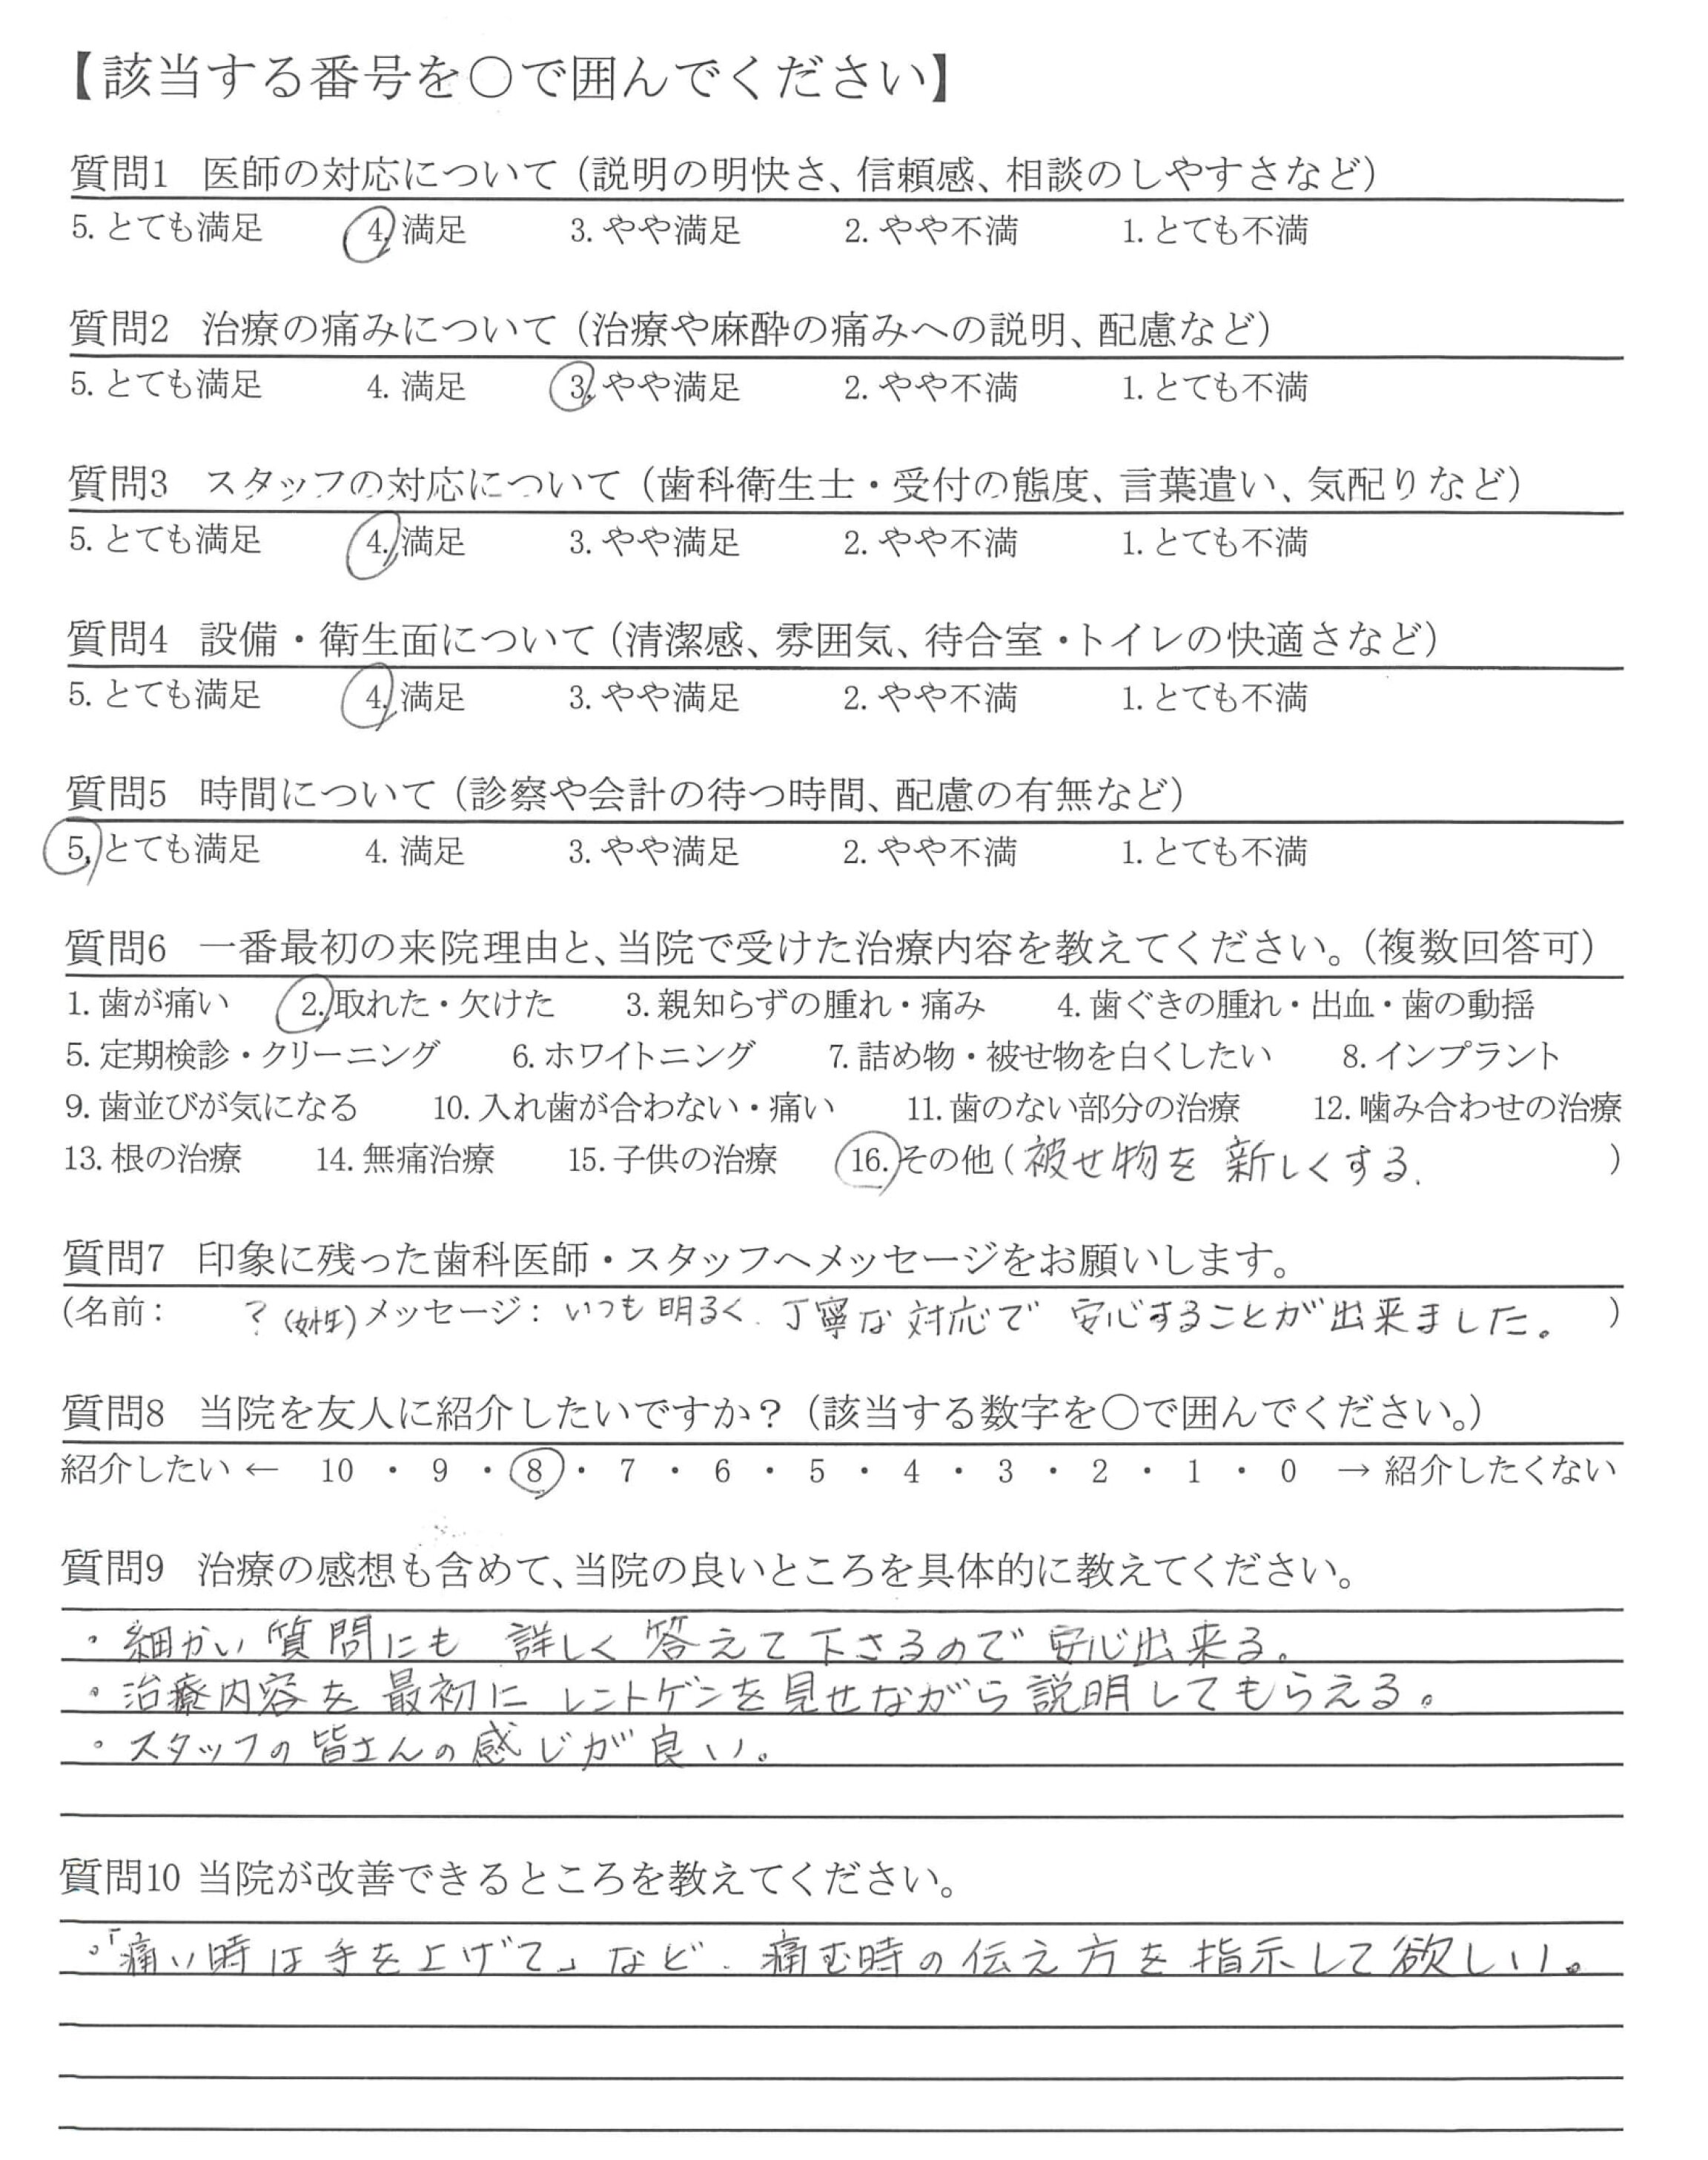 【該当する番号を○で囲んでください】
質問1 医師の対応について（説明の明快さ、信頼感、相談のしやすさなど）
5. とても満足 4. 満足 3. やや満足 2. やや不満 1. とても不満
質問2 治療の痛みについて（治療や麻酔の痛みへの説明、配慮など）
5. とても満足 4. 満足 3. やや満足 2. やや不満 1. とても不満
質問3 スタッフの対応について（歯科衛生士・受付の態度、言葉遣い、気配りなど）
5. とても満足 4. 満足 3. やや満足 2. やや不満 1. とても不満
質問4 設備・衛生面について（清潔感、雰囲気、待合室・トイレの快適さなど）
5. とても満足 4. 満足 3. やや満足 2. やや不満 1. とても不満
質問5 時間について（診察や会計の待つ時間、配慮の有無など）
5. とても満足 4. 満足 3. やや満足 2. やや不満 1. とても不満
質問6 一番最初の来院理由と、当院で受けた治療内容を教えてください。（複数回答可）
1. 歯が痛い 2. 取れた・欠けた 3. 親知らずの腫れ・痛み 4. 歯ぐきの腫れ・出血・歯の動揺
5. 定期検診・クリーニング 6. ホワイトニング 7. 詰め物・被せ物を白くしたい 8. インプラント
9. 歯並びが気になる 10. 入れ歯が合わない・痛い 11. 歯のない部分の治療 12. 噛み合わせの治療
13. 根の治療 14. 無痛治療 15. 子供の治療 16. その他（被せ物を新しくする. ）
質問7 印象に残った歯科医師・スタッフへメッセージをお願いします。
(名前： ? (女性) メッセージ：いつも明るく、丁寧な対応で安心することが出来ました。 )
質問8 当院を友人に紹介したいですか？（該当する数字を○で囲んでください。）
紹介したい ← 10 ・ 9 ・ 8 ・ 7 ・ 6 ・ 5 ・ 4 ・ 3 ・ 2 ・ 1 ・ 0 → 紹介したくない
質問9 治療の感想も含めて、当院の良いところを具体的に教えてください。
・細かい質問にも詳しく答えて下さるので安心出来る。
・治療内容を最初にレントゲンを見せながら説明してもらえる。
・スタッフの皆さんの感じが良い。
質問10 当院が改善できるところを教えてください。
・「痛い時は手を上げて」など、痛む時の伝え方を指示して欲しい。